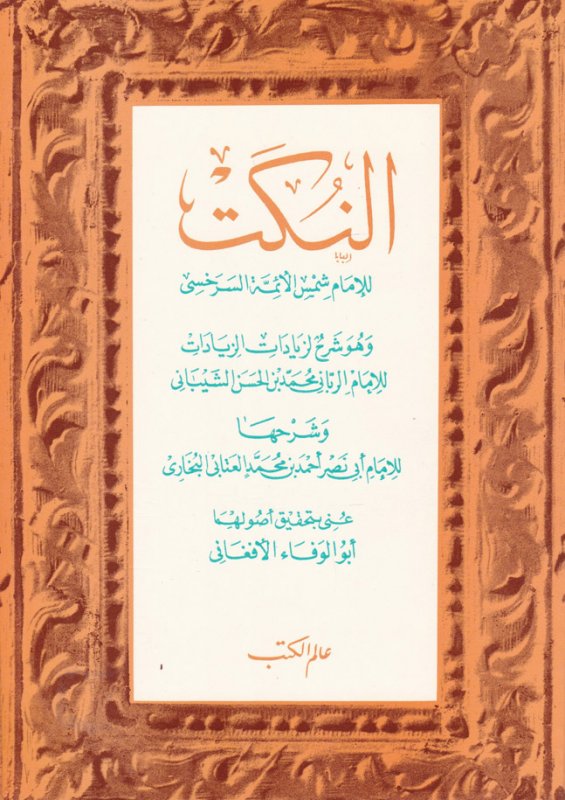 النُكَت
البابا
للإمام شمس الأئمة السرخسي
وهو شرح لزيادات الزيادات
للإمام الرباني محمد بن الحسن الشيباني
وشرحها
للإمام أبي نصر أحمد بن محمد العتابي البخاري
عني بتحقيق أصولهما
أبو الوفاء الأفغاني
عالم الكتب